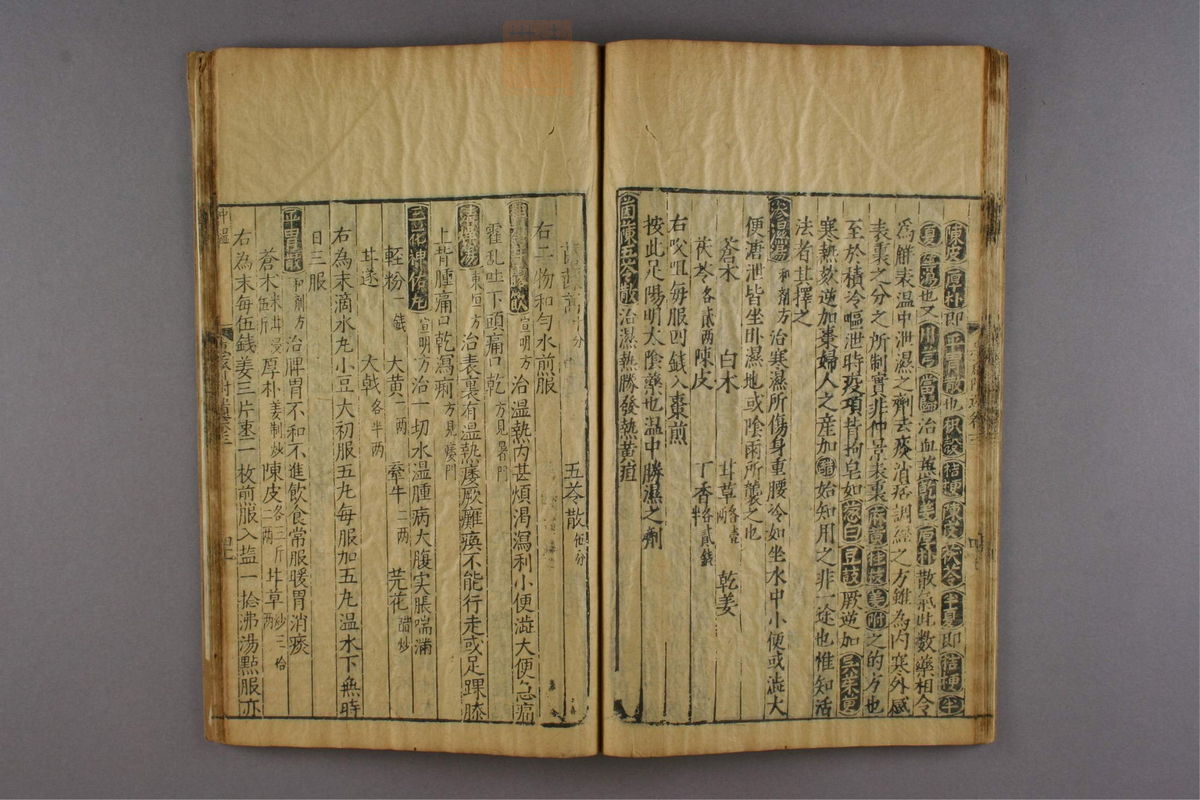 陳皮厚朴即平胃散也枳殼桔梗陳皮茯苓半夏即桔梗半
夏湯也又川芎當歸治血燕乾姜厚朴散氣此数藥相合
為觧表温中泄濕之劑去痰消痞調經之方雖為内寒外感
表裏之分之所制實非仲景表裏麻黄桂枝姜附之的方也
至於積冷嘔泄時疫項背拘皂如葱白豆豉厥逆加吴茱萸
寒熱欬逆加棗婦人之産加醋始知用之非一途也惟知活
法者其擇之
滲濕湯和劑方治寒濕所傷身重腰冷如坐水中小便或澁大
便溏泄皆坐卧濕地或陰雨所襲之也
蒼术 白术 甘草各壹兩 乾姜
茯苓各貳两陳皮 丁香各貳錢半
右㕮咀每服四錢入棗煎
按此足陽明太陰藥也温中勝濕之劑
茵陳五苓散治濕熱勝發熱黄疸
茵蔯蒿十分 五苓散伍分
右二物和匀水前服
宣明方治温熱内甚煩渴瀉利小便澁大便急痛
霍乱吐下頭痛口乾方見暑門
清燥湯東垣方治表裏有温熱痿厥癱瘓不能行走或足踝膝
上皆腫痛口乾瀉痢方見痿門
三花神佑丸宣明方治一切水湿腫病大腹实脹喘滿
輕粉一錢 大黄一两 牽牛二两 芫花醋炒
甘遂 大戟各半两
右為末滴水丸小豆大初服五丸每服加五丸温水下無時
日三服
平胃散和劑方治脾胃不和不進飲食常服暖胃消痰
蒼术米泔浸伍斤厚朴姜制炒陳皮各三斤二两甘草炒三拾两
右為末每伍錢姜三片棗一枚煎服入盐一捻沸湯點服亦